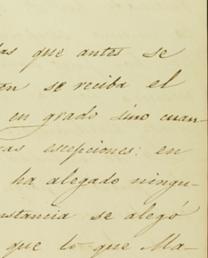 las que antes se
on se reciba el
en grado sino cuan-
ras escepciones: en
ha alegado ningu-
nstancia se alegó
que lo que Ma-